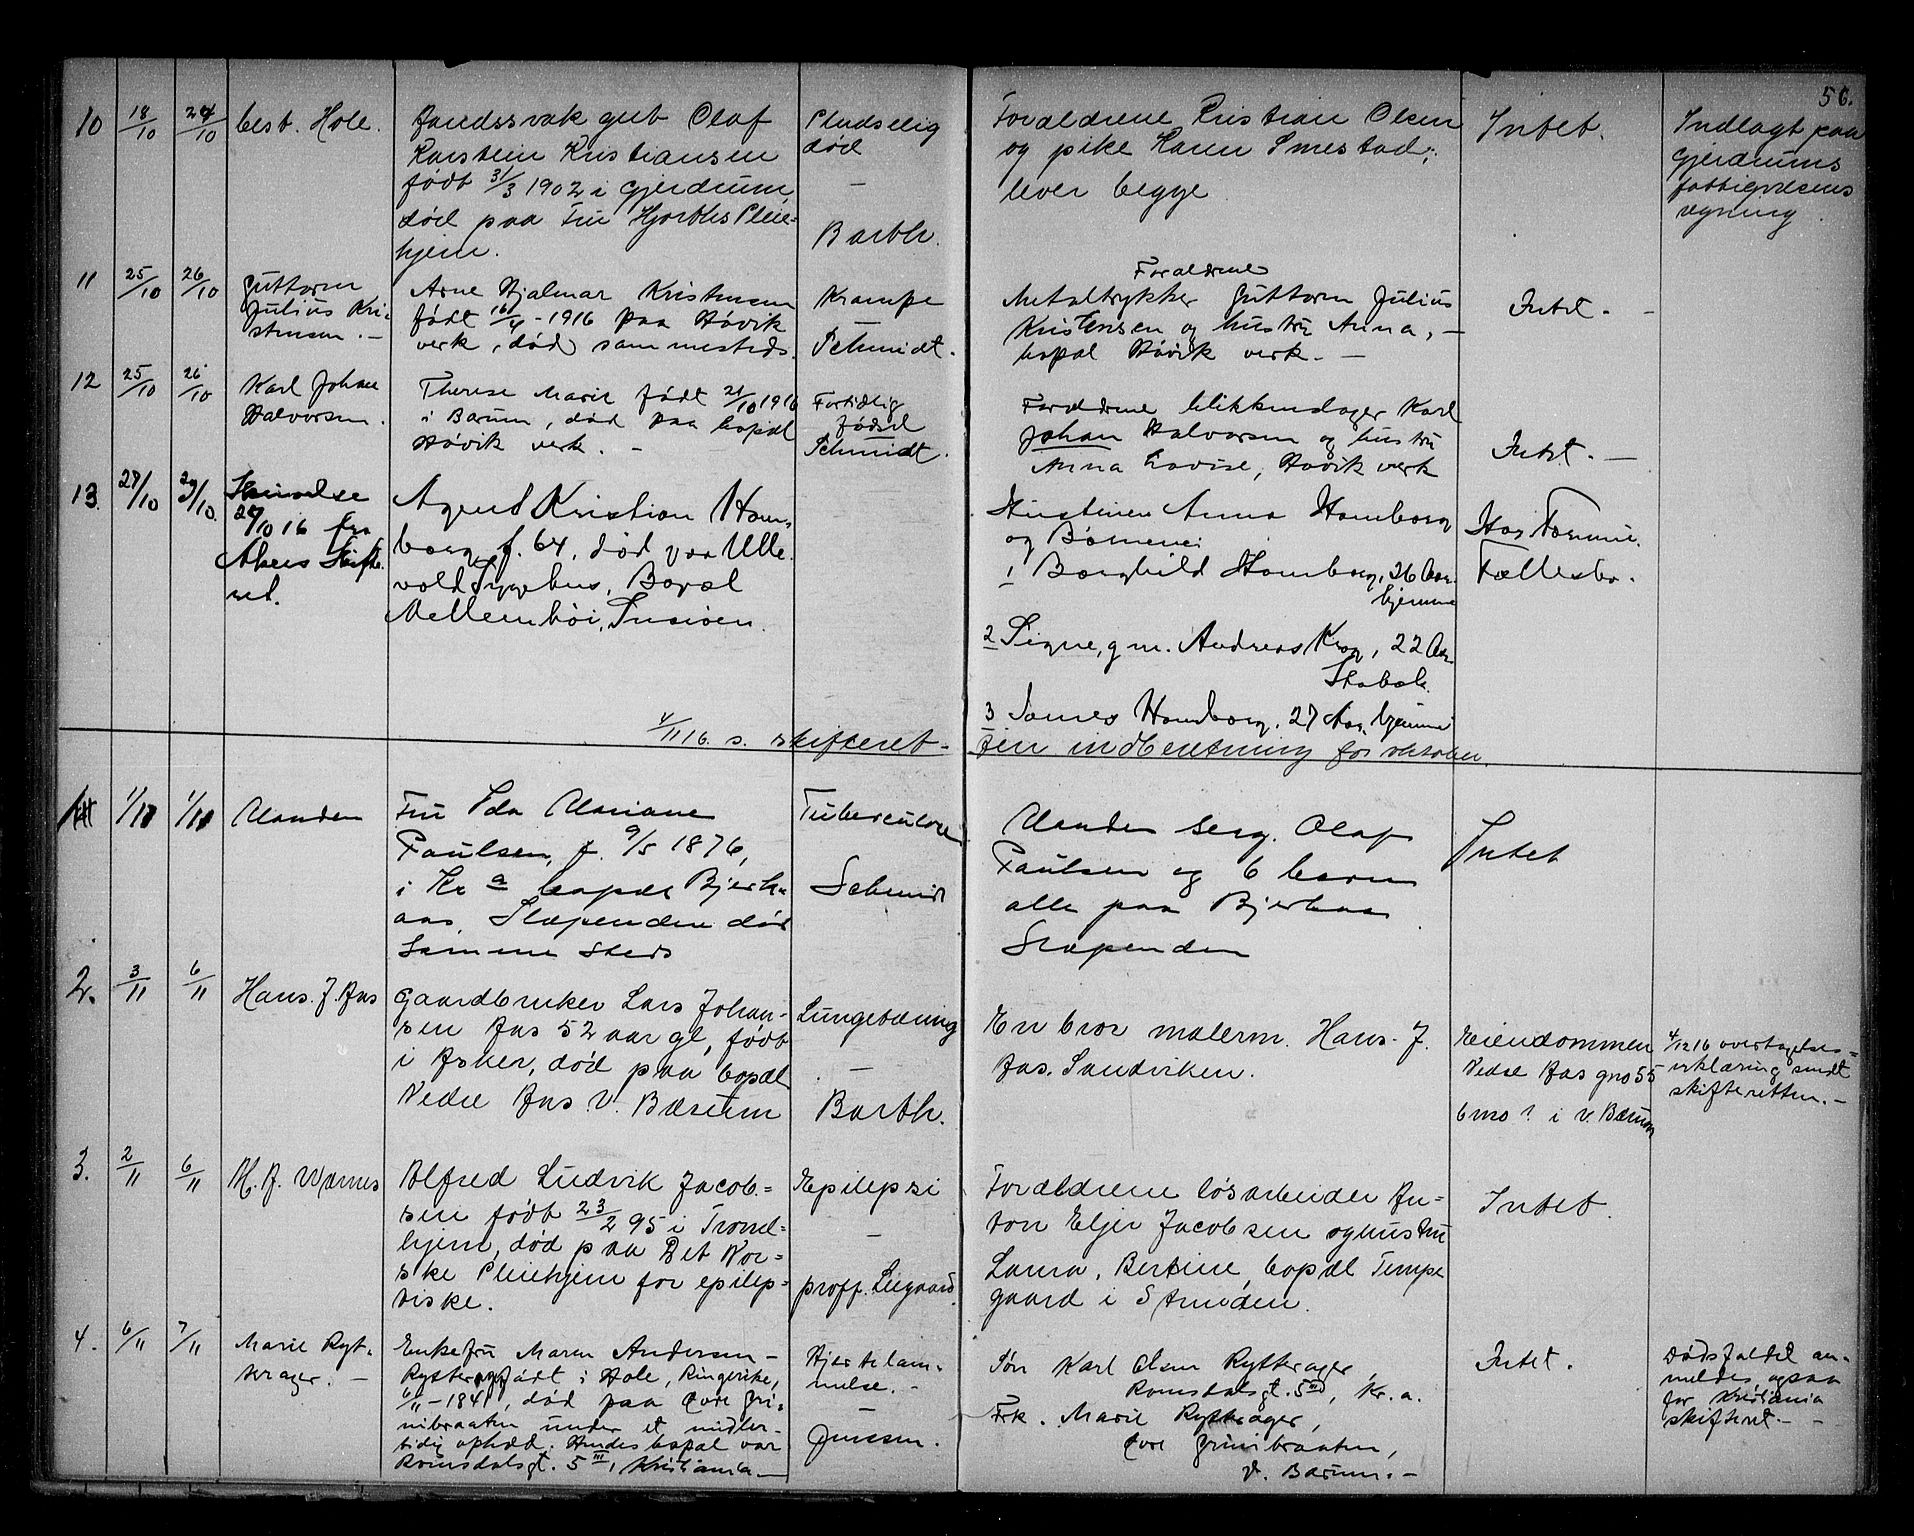 56.
10 18/10 24/10 best. Hole. Aandssvak gut Olaf
Karstein Kristiansen
født 31/3 1902 i Gjerdrum,
død paa Fru Hjorths Pleie-
hjem.
Pludselig
død
—
Barth.
Forældrene Kristian Olsen
og pike Karen Smestad;
lever begge
Intet.
Indlagt paa
Gjerdrums
fattigvæsens
regning.
11 25/10 26/10 Guttorm
Julius Kri-
stensen. —
Arne Hjalmar Kristensen
født 16/4 - 1916 paa Høvik
verk, død sammesteds.
Krampe
Schmidt.
Forældrene
Metaltrykker Guttorm Julius
Kristensen og hustru Anna, —
bopæl Høvik verk. —
Intet. —
12 25/10 26/10 Karl Johan
Halvorsen.
Therese Marie født 21/10 1916
i Bærum, død paa bopæl
Høvik verk. —
Fortidlig
fødsel
Schmidt.
Forældrene blikkenslager Karl
Johan Halvorsen og hustru
Anna Lovise, Høvik verk
Intet. —
13. 28/10 29/10. Skrivelse
28/10 16 fra
Akers Skifte-
ret.
Agent Kristian Hom-
borg, f. 64, død paa Ulle-
vold Sygehus, Bopæl
Mellembøi, Snarøen.
Hustruen Anna Homborg
og Børnene:
1 Borghild Homborg, 26 Aar.
hjemme
2 Signe, g m. Andreas Krog, 22 Aar.
Stabæk.
3 James Homborg, 27 Aar, hjemme
Hos Formue.
Fællesbo.
4/11 16. s. skifteret - fin indberetning for oktober.
1 1/11 1/11 Manden
Fru Ida Mariane
Paulsen, f. 9/5 1876,
i Kr a bopæl Bjerk-
aas Slæpenden død
samme steds
Tuberculose
Schmidt
Manden serg. Olaf
Paulsen og 6 barn
alle paa Bjerkaas
Slæpenden
Intet
2. 3/11 6/11 Hans. J. Aas
Gaardbruker Lars Johan-
sen Aas 52 aar gl, født
i Asker, død paa bopæl
Nedre Aas V. Bærum
Lungebetændning
—
Barth.
En bror malerm. Hans. J.
Aas. Sandviken.
Eiendommen
Nedre Aas gno 55
bno ? i V. Bærum
4/12 16 overtagelses-
erklæring sendt
skifteretten. —
3. 2/11 6/11 M. A. Wærnes
Alfred Ludvik Jacob-
sen født 23/2 95 i Trond-
hjem, død paa Det Nor-
ske Pleiehjem for epilep-
tiske.
Epilepsi
—
proff. Leegaard.
Forældrene løsarbeider An-
ton Eljer Jacobsen og hustru
Laura, Bertine, bopæl Tempe
gaard i Strinden.
Intet.
4. 6/11 7/11 Marie Ryt-
terager. —
Enkefru Maren Andersen —
Rytterager født i Hole, Ringerike,
6/11 - 1841, død paa Øvre Gri-
nibraaten under et midler-
tidig ophold. Hendes bopæl var
Romsdalsgt. 5 III, Kristiania —
Hjertelam-
melse. —
—
Jenssen.
Søn Karl Olsen Rytterager,
Romsdalsgt. 5 III, Kr.a.
Frk. Marie Rytterager,
Øvre Grinibraaten,
V. Bærum. —
Intet.
Dødsfaldet an-
meldes ogsaa
for Kristiania
skifteret. —